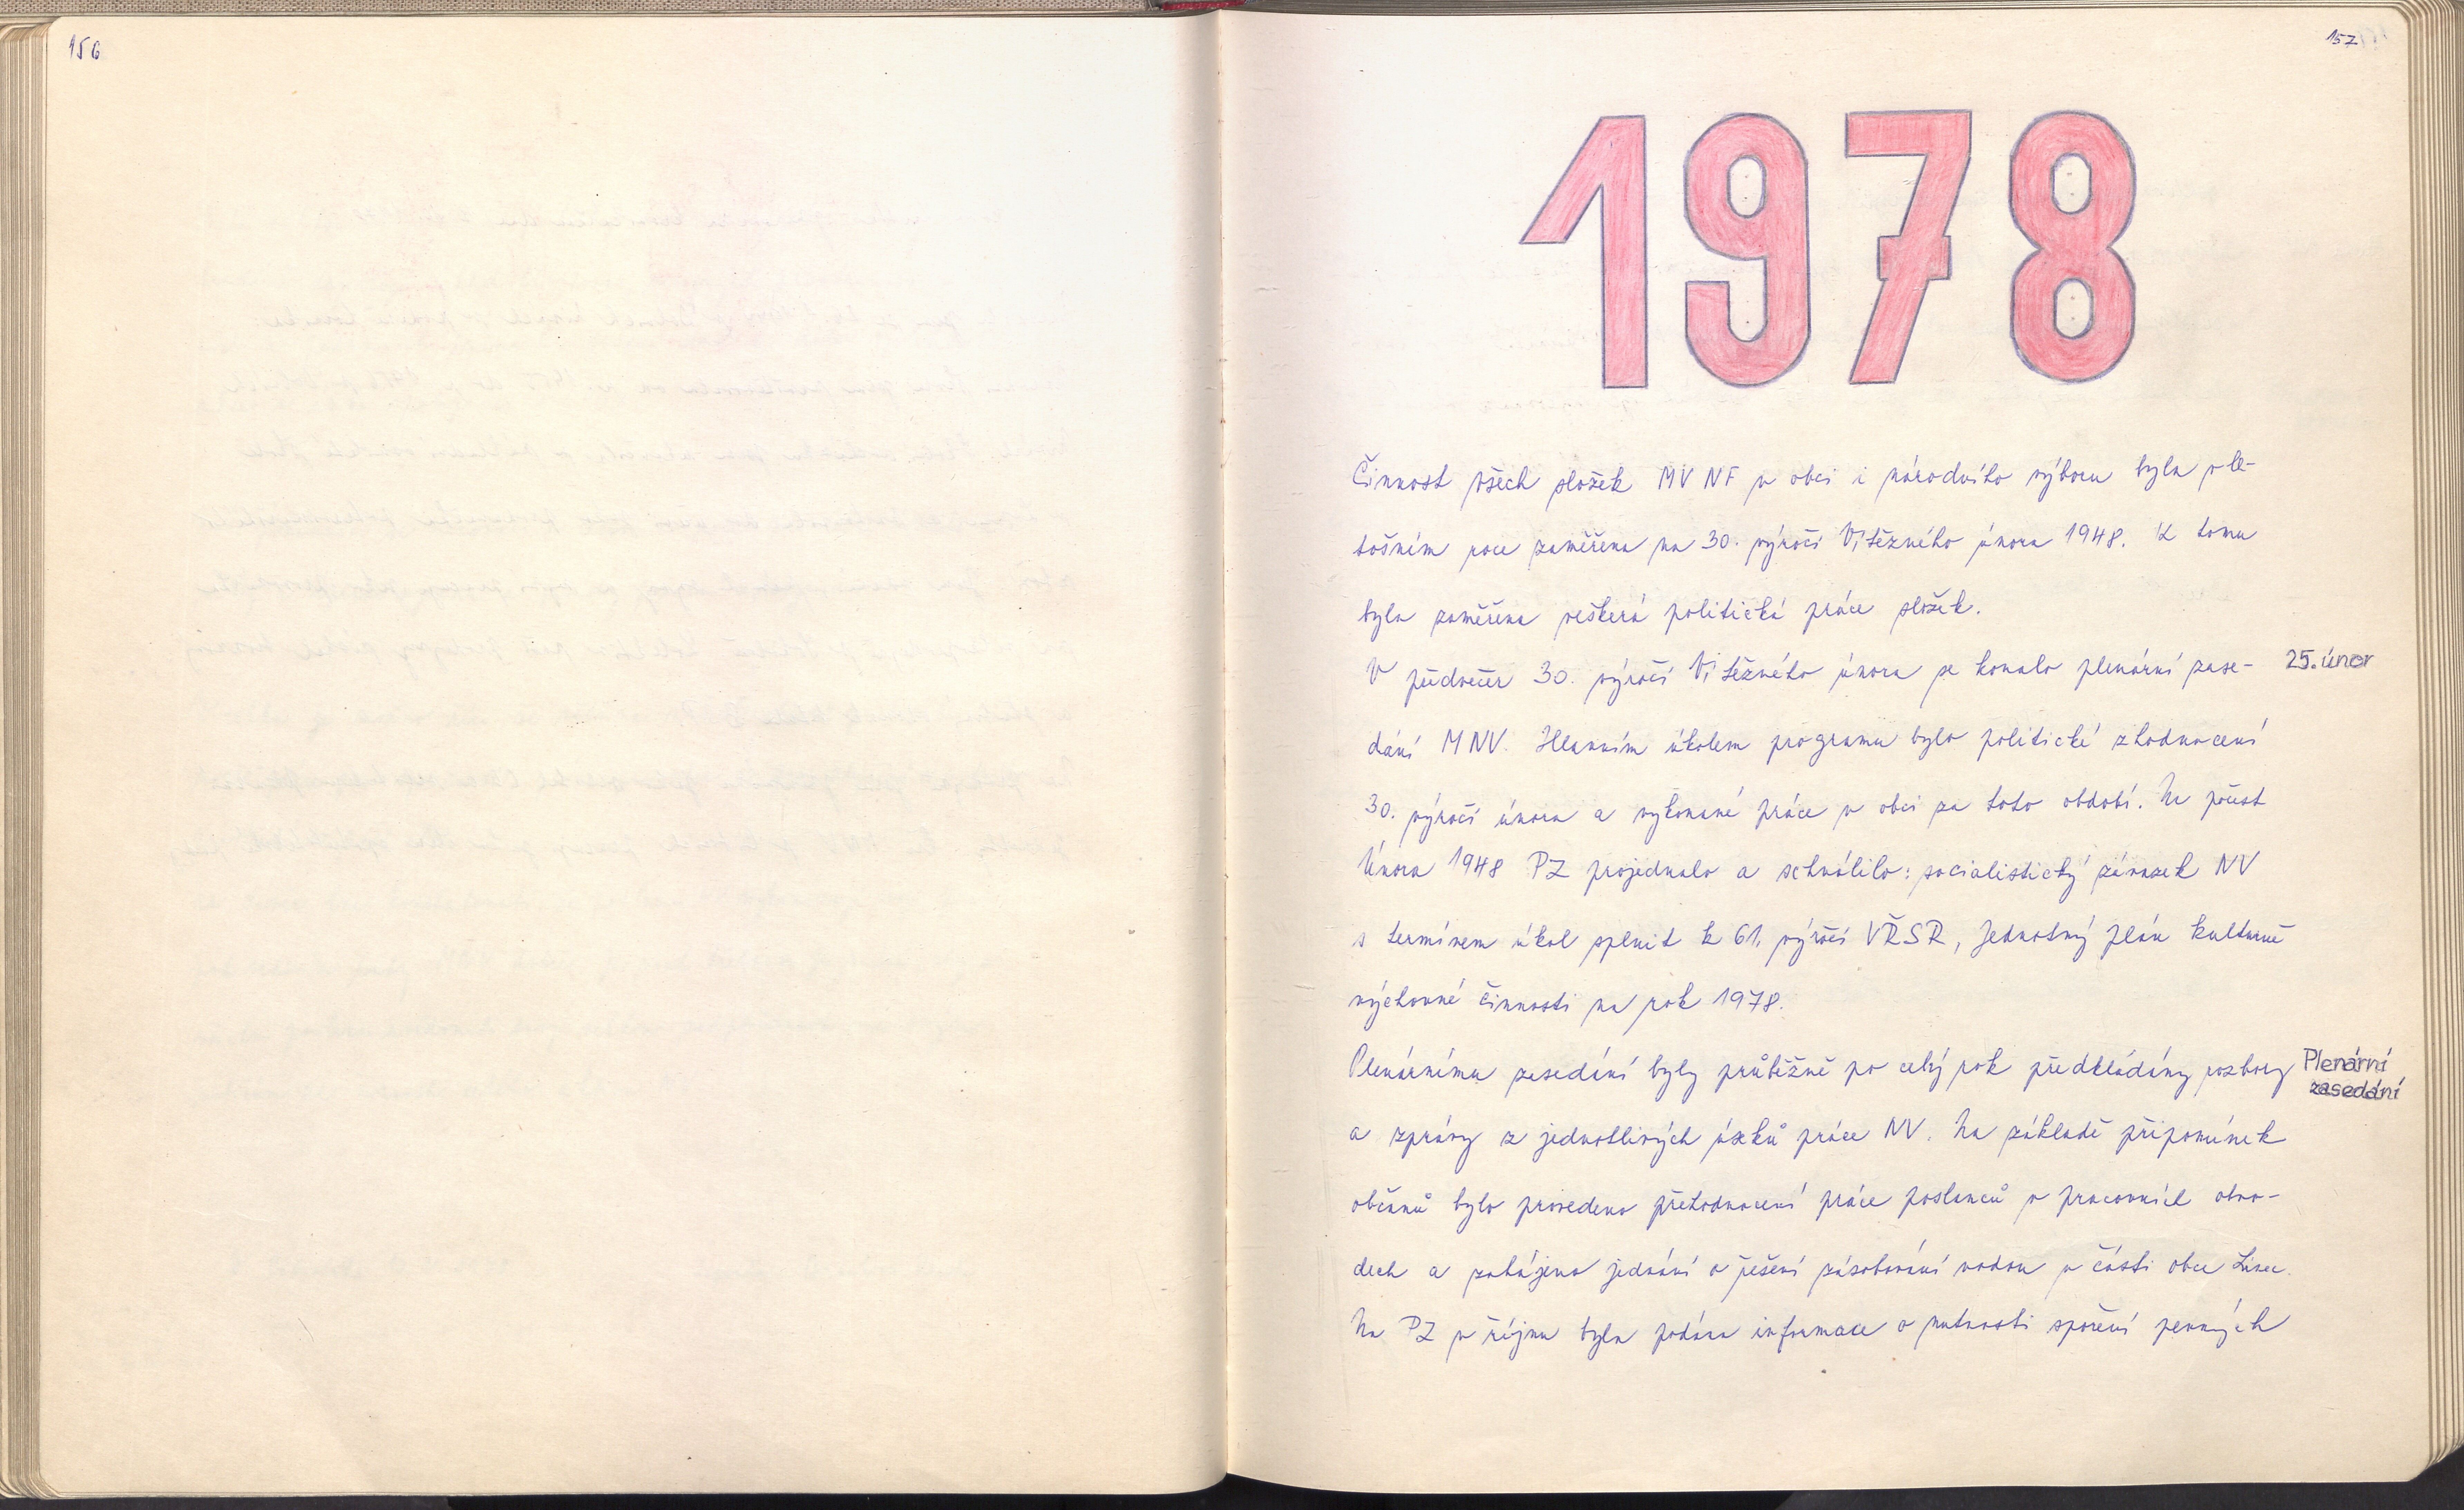 156
157
1978
Činnost všech složek MV NF v obci i národního výboru byla v le-
tošním roce zaměřena na 30. výročí Vítězného února 1948. K tomu
byla zaměřena veškerá politická práce složek.
V předvečer 30. výročí Vítězného února se konalo plenární zase-
25. únor
dání MNV. Hlavním úkolem programu bylo politické zhodnocení
30. výročí února a vykonané práce v obci za toto období. Na počest
Února 1948 PZ projednalo a schválilo: socialistický závazek NV
s termínem úkol splnit k 61. výročí VŘSR, Jednotný plán kulturně
výchovné činnosti na rok 1978.
Plenárnímu zasedání byly průběžně po celý rok předkládány rozbory
Plenární
zasedání
a zprávy z jednotlivých úseků práce NV. Na základě připomínek
občanů bylo provedeno přehodnocení práce poslanců v pracovních obvo-
dech a zahájeno jednání o řešení zásobování vodou v části obce
Na PZ v říjnu byla podána informace o nutnosti spoření pevných